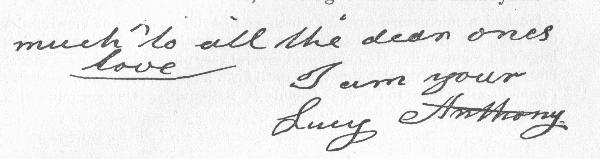 much to all the dear ones
love
I am your
Lucy Anthony